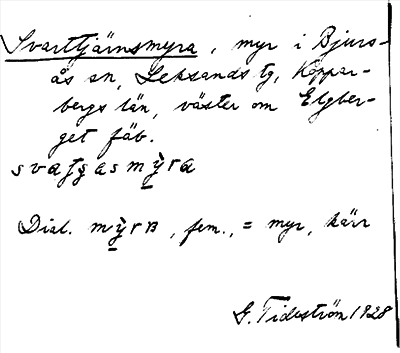 Svarttjärnsmyra, myr i Bjurs-
ås sn, Leksands tg, Koppar-
bergs län, väster om Elgber-
get fäb.
svatsasmỳra
Dial. mỳrʙ, fem., = myr, kärr
G. Tideström 1928